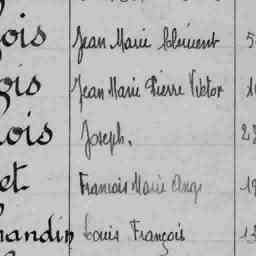 ois Jean Marie Clément 5
ois Jean Marie Pierre Victor 1
ois Joseph. 2
et François Marie Ange 1
handin Louis François 1